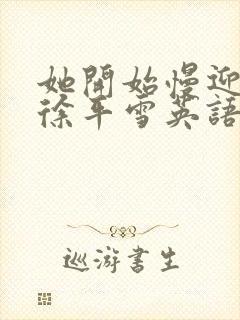 她開始慢迎
徐平雪英語
巡游書生